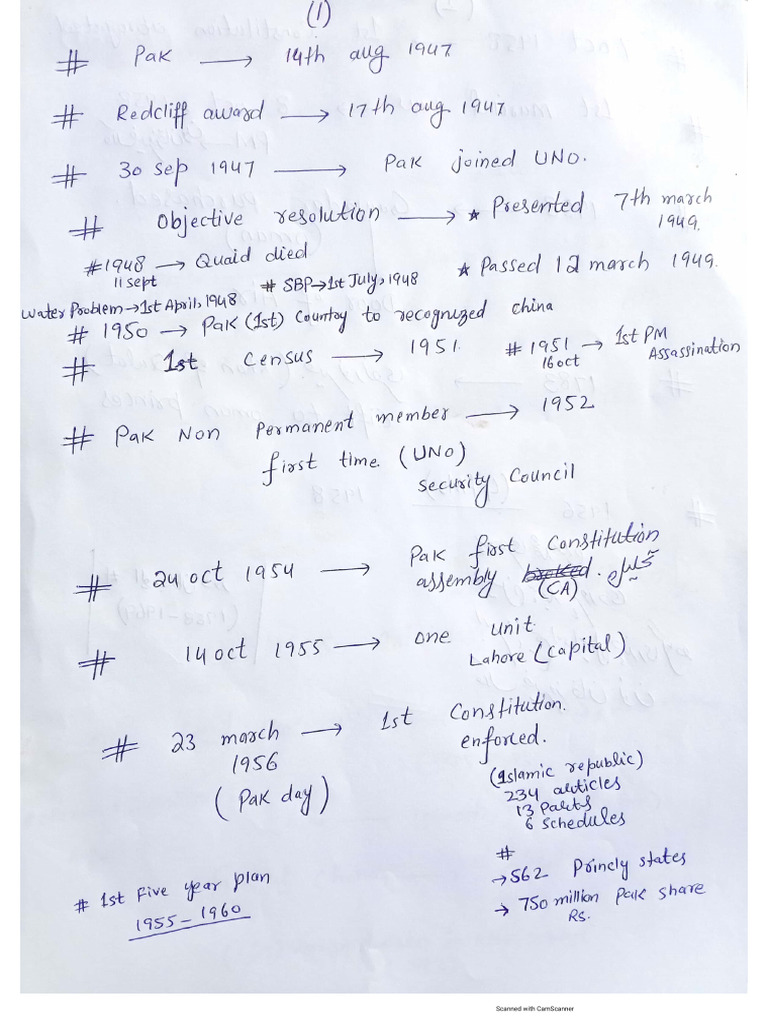 (1)
# Pak → 14th aug 1947
# Redcliff award → 17th aug 1947
# 30 sep 1947 → Pak joined UNO.
# Objective resolution → ★ Presented 7th march 1949.
★ Passed 12 march 1949.
#1948 → Quaid died
11 sept
# SBP→1st July, 1948
Water Problem→1st April, 1948
# 1950 → Pak (1st) Country to recognized china
# 1st Census → 1951.
# 1951 → 1st PM
16 oct Assassination
# Pak Non Permanent member → 1952
first time (UNO)
security Council
# 24 oct 1954 → Pak first Constitution
assembly (CA) تحلیل
# 14 oct 1955 → one unit
Lahore (capital)
# 23 march → 1st Constitution.
1956 enforced.
(Pak day)
(Islamic republic)
234 articles
13 Parts
6 schedules
# 1st Five year plan
1955 – 1960
#
→562 Princly states
→ 750 million Pak share
Rs.
Scanned with CamScanner